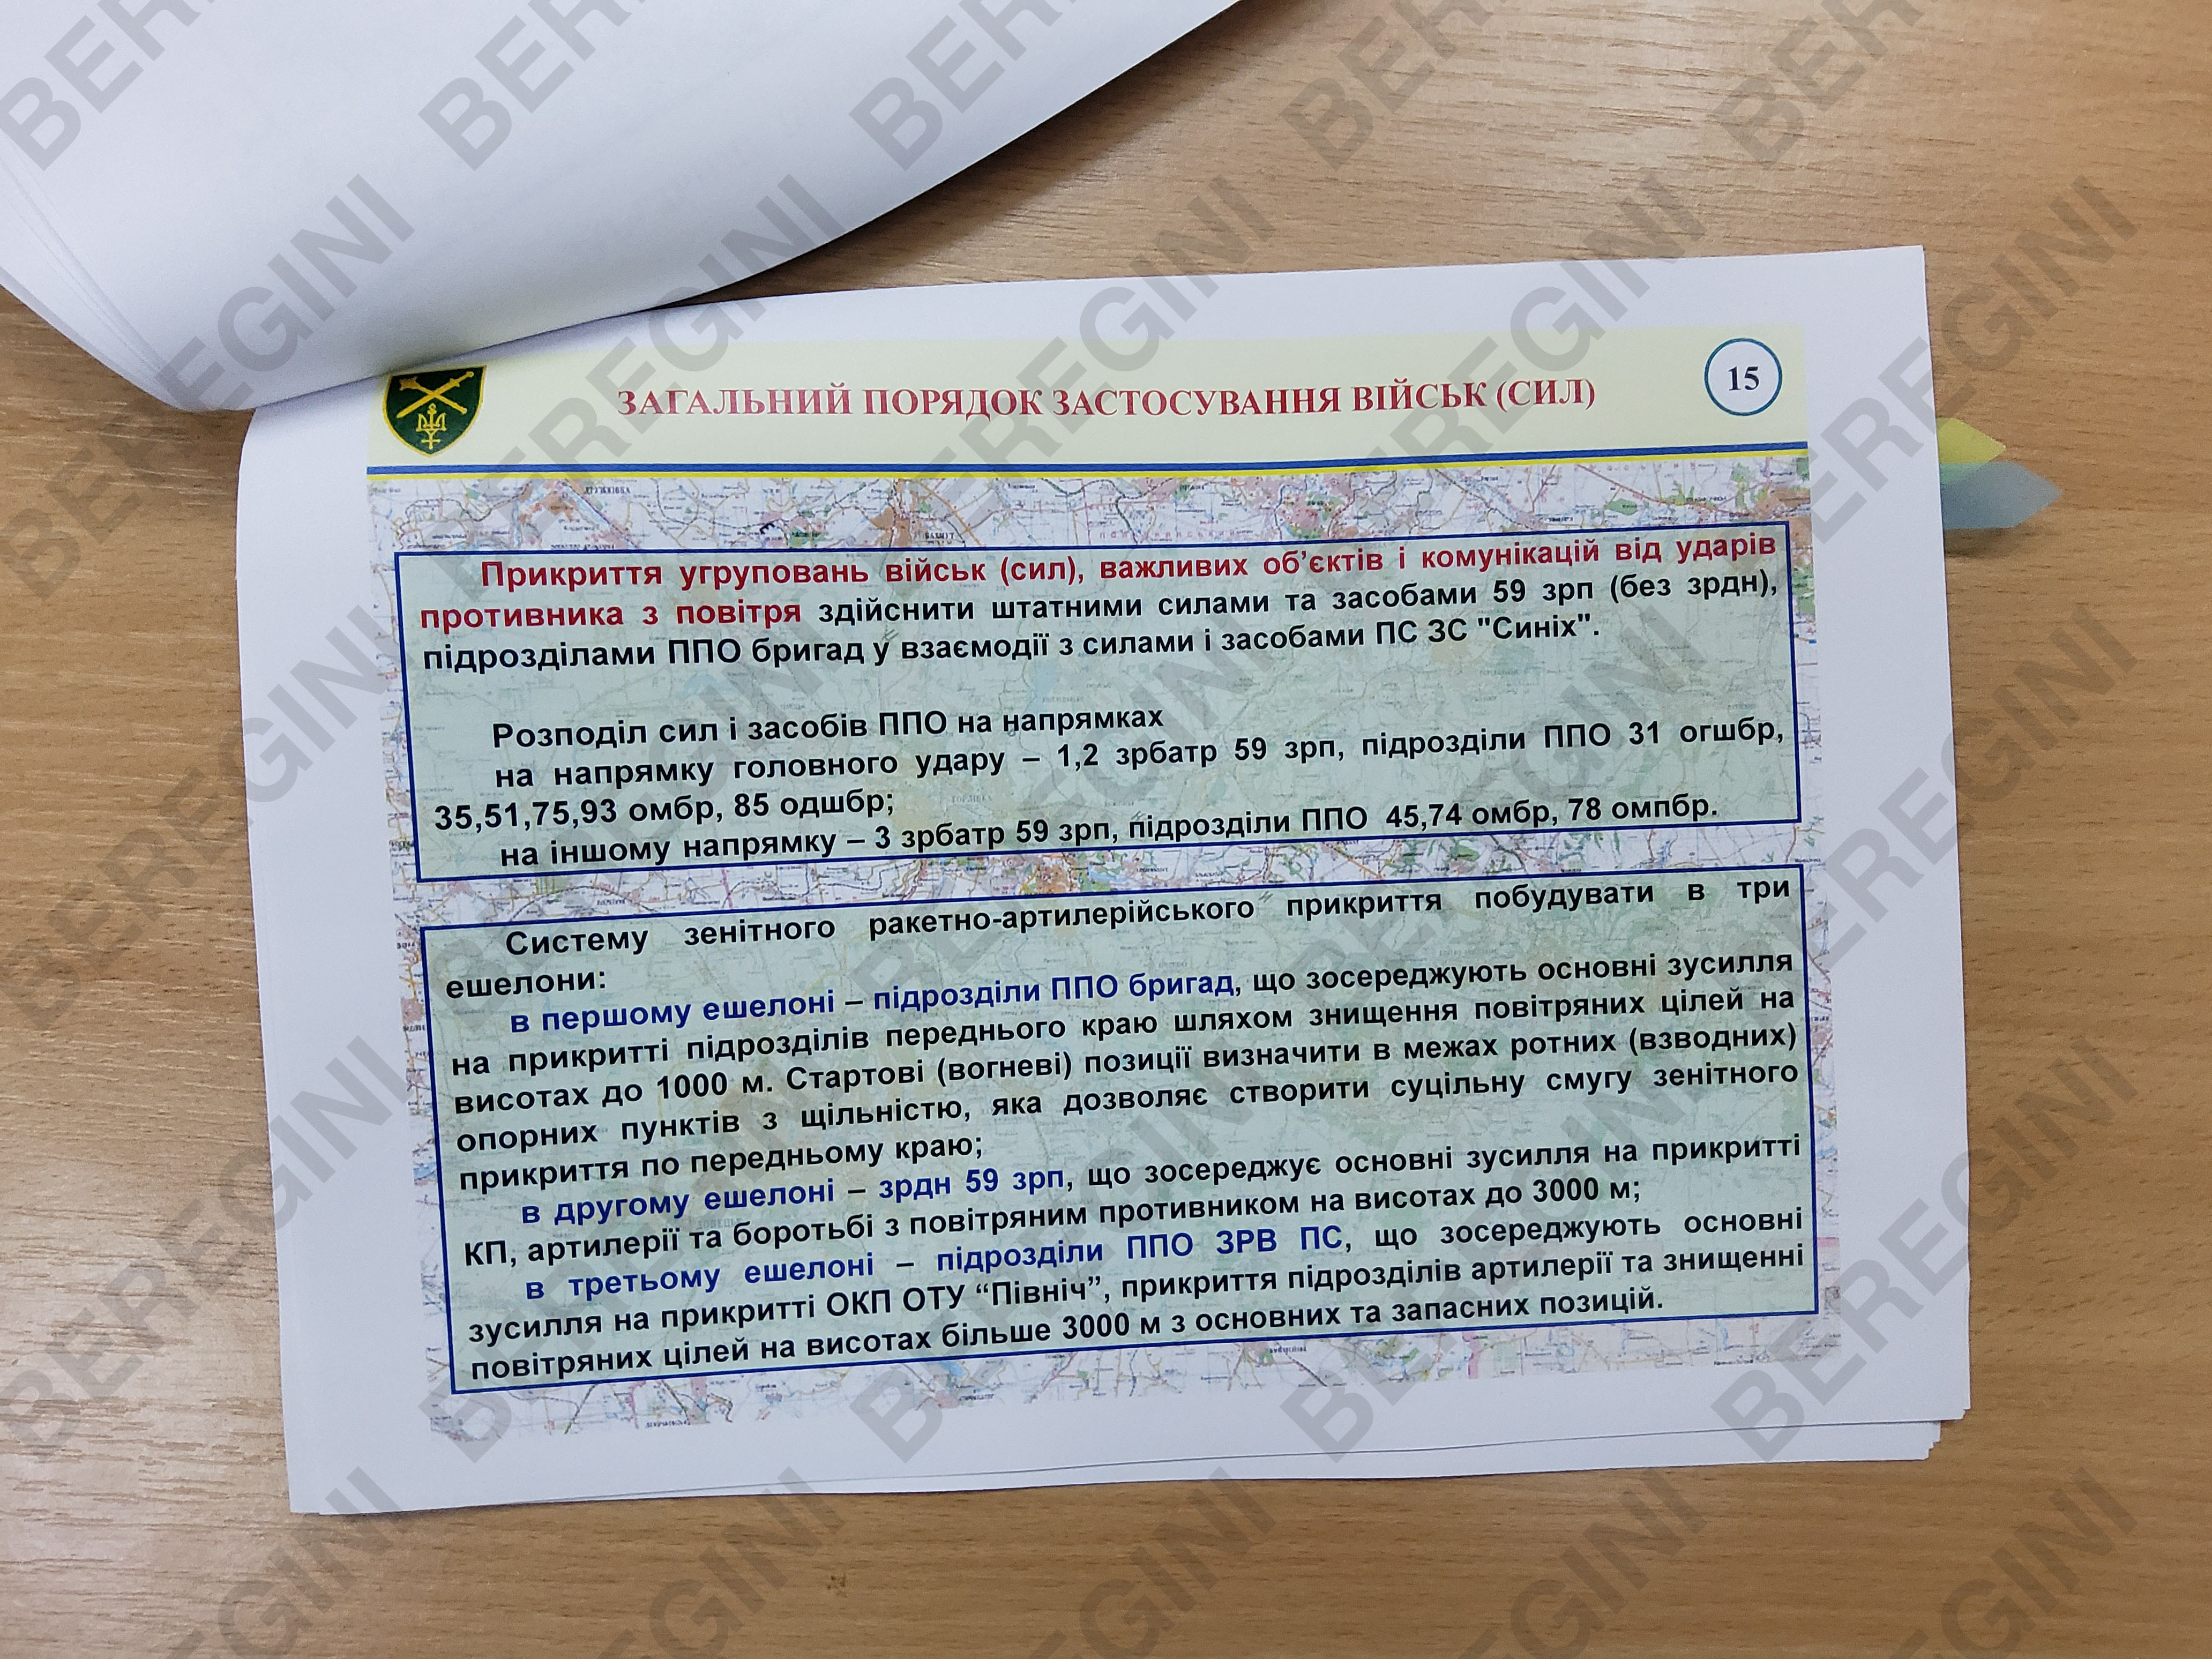 ЗАГАЛЬНИЙ ПОРЯДОК ЗАСТОСУВАННЯ ВІЙСЬК (СИЛ)
15
Прикриття угруповань військ (сил), важливих об’єктів і комунікацій від ударів
противника з повітря здійснити штатними силами та засобами 59 зрп (без зрдн),
підрозділами ППО бригад у взаємодії з силами і засобами ПС ЗС "Синіх".
Розподіл сил і засобів ППО на напрямках
на напрямку головного удару – 1,2 зрбатр 59 зрп, підрозділи ППО 31 огшбр,
35,51,75,93 омбр, 85 одшбр;
на іншому напрямку – 3 зрбатр 59 зрп, підрозділи ППО 45,74 омбр, 78 омпбр.
Систему зенітного ракетно-артилерійського прикриття побудувати в три
ешелони:
в першому ешелоні – підрозділи ППО бригад, що зосереджують основні зусилля
на прикритті підрозділів переднього краю шляхом знищення повітряних цілей на
висотах до 1000 м. Стартові (вогневі) позиції визначити в межах ротних (взводних)
опорних пунктів з щільністю, яка дозволяє створити суцільну смугу зенітного
прикриття по передньому краю;
в другому ешелоні – зрдн 59 зрп, що зосереджує основні зусилля на прикритті
КП, артилерії та боротьбі з повітряним противником на висотах до 3000 м;
в третьому ешелоні – підрозділи ППО ЗРВ ПС, що зосереджують основні
зусилля на прикритті ОКП ОТУ “Північ”, прикриття підрозділів артилерії та знищенні
повітряних цілей на висотах більше 3000 м з основних та запасних позицій.
BEREGINI